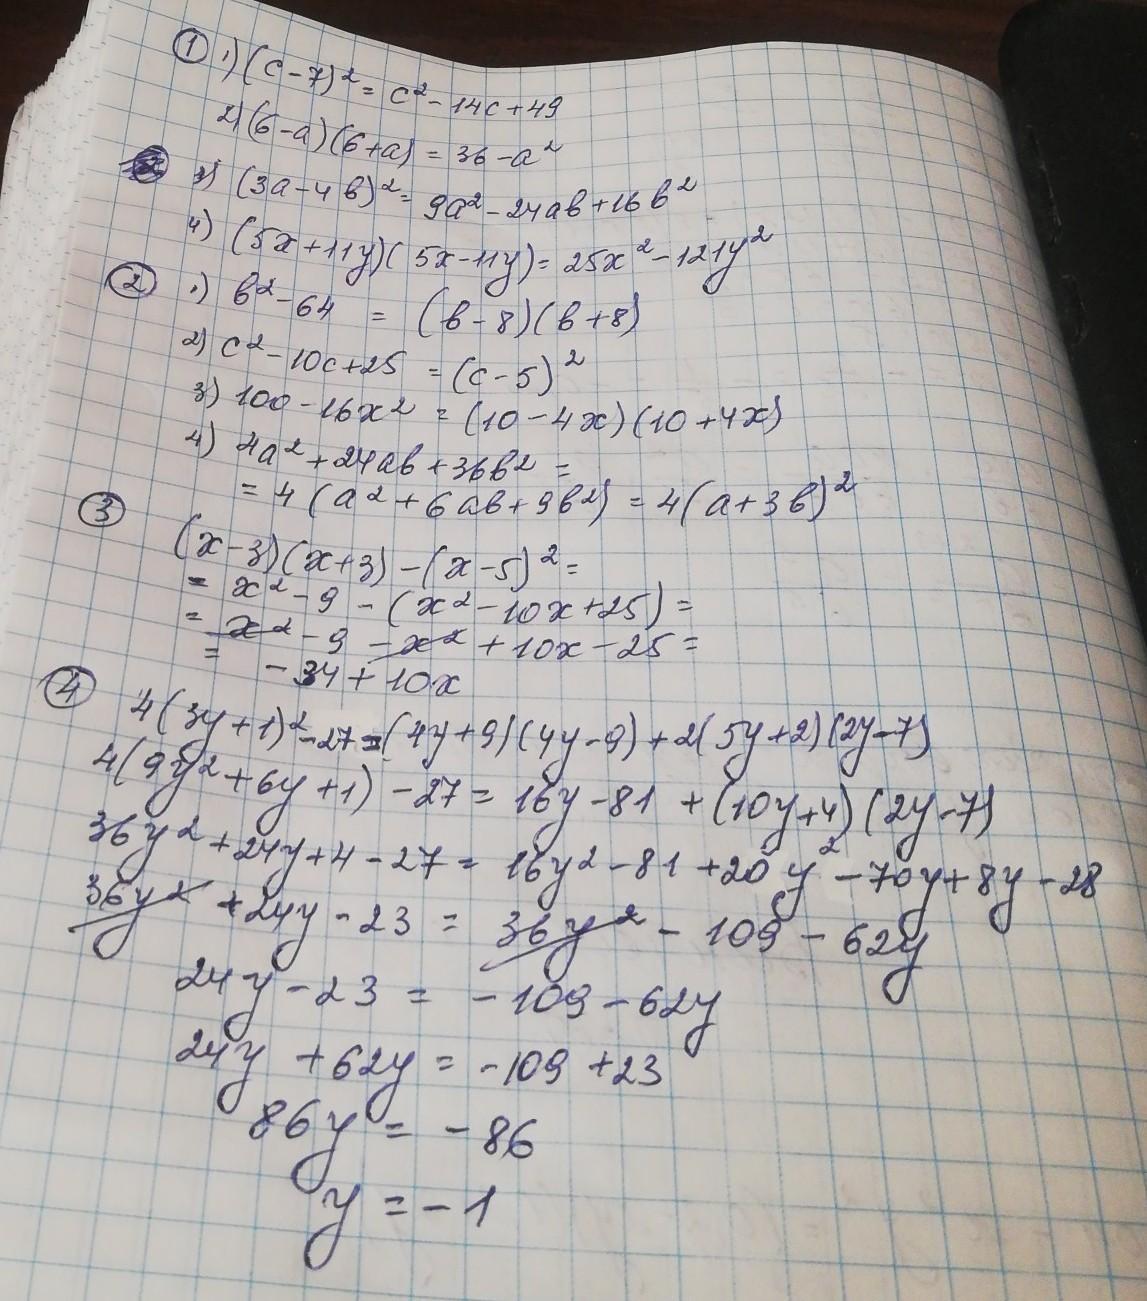 ① 1) (c-7)² = c² - 14c + 49
2) (6-a)(6+a) = 36 - a²
3) (3a-4в)² = 9a² - 24aв + 16в²
4) (5x+11y)(5x-11y) = 25x² - 121y²
② 1) в² - 64 = (в-8)(в+8)
2) c² - 10c + 25 = (c-5)²
3) 100 - 16x² = (10-4x)(10+4x)
4) 4a² + 24aв + 36в² =
= 4(a² + 6aв + 9в²) = 4(a+3в)²
③
(x-3)(x+3) - (x-5)² =
= x² - 9 - (x² - 10x + 25) =
= x² - 9 - x² + 10x - 25 =
= -34 + 10x
④ 4(3y+1)² - 27 = (4y+9)(4y-9) + 2(5y+2)(2y-7)
4(9y² + 6y + 1) - 27 = 16y - 81 + (10y+4)(2y-7)
36y² + 24y + 4 - 27 = 16y² - 81 + 20y² - 70y + 8y - 28
36y² + 24y - 23 = 36y² - 109 - 62y
24y - 23 = -109 - 62y
24y + 62y = -109 + 23
86y = -86
y = -1